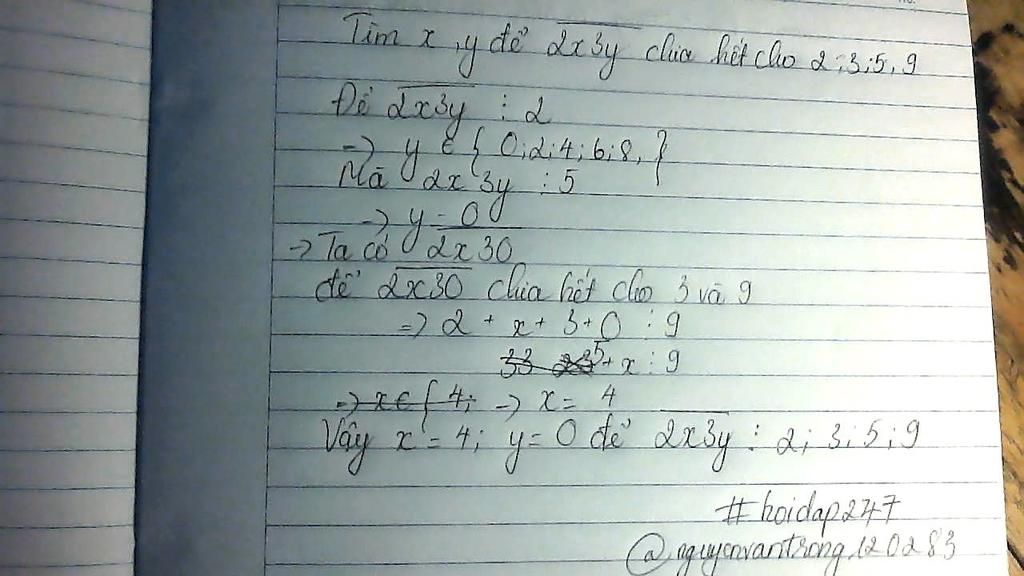 Tìm x, y để 2x3y chia hết cho 2;3;5,9
Để 2x3y ⋮ 2
→ y ∈ { 0;2;4;6;8, }
Mà 2x3y ⋮ 5
→ y = 0
→ Ta có 2x30
để 2x30 chia hết cho 3 và 9
=> 2 + x + 3 + 0 ⋮ 9
5 + x ⋮ 9
→ x ∈ { 4; → x = 4
Vậy x = 4; y = 0 để 2x3y ⋮ 2; 3; 5; 9
#hoidap247
@nguyenvantrong120283